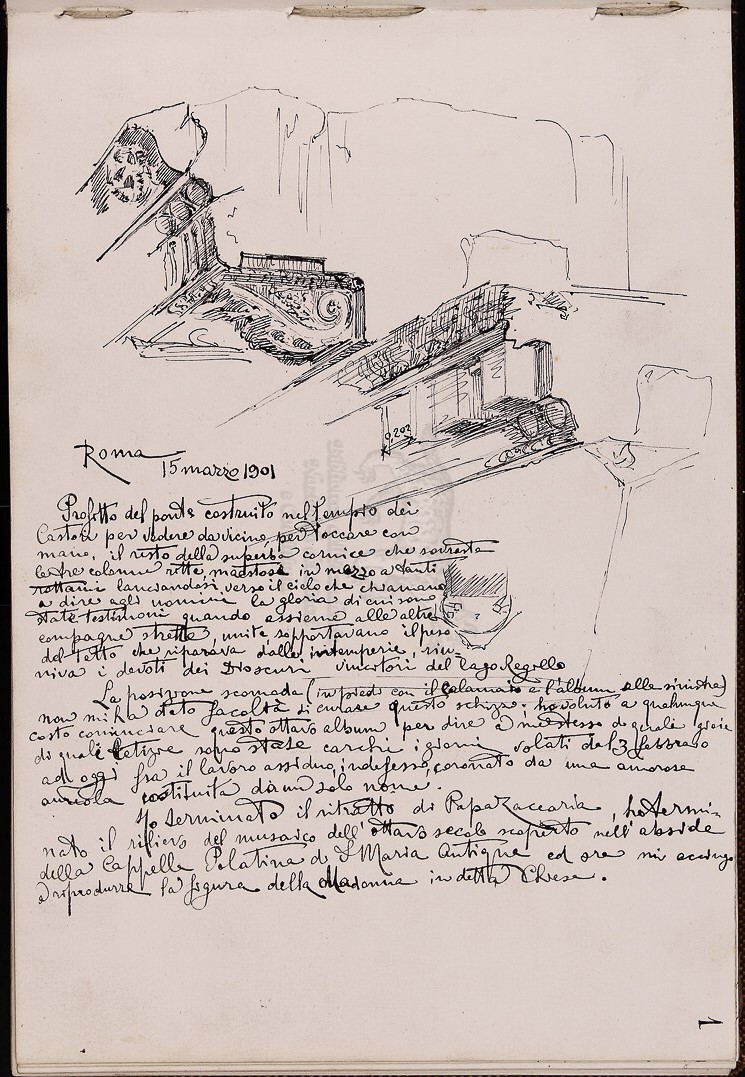 0,202
Roma
15 marzo 1901
Profitto del ponte costruito nel tempio dei
Castori per vedere da vicino, per toccare con
mano, il resto della superba cornice che sovrasta
le tre colonne ritte, maestose in mezzo a tanti
rottami lanciandosi verso il cielo che chiamano
a dire agli uomini la gloria di cui sono
state testimoni quando assieme alle altre
compagne strette, unite, sopportavano il peso
del tetto che riparava dalle intemperie, riu-
niva i devoti dei Dioscuri vincitori del lago Regillo
La posizione scomoda (in piedi con il calamaio e l'album alla sinistra)
non mi ha dato facoltà di curare questo schizzo; ho voluto a qualunque
costo cominciare questo ottavo album per dire a me stesso di quale gioie
di quali letizie sono state carchi i giorni volati dal 3 febbraio
ad oggi fra il lavoro assiduo, indefesso, coronato da una amorosa
aureola costituita di un solo nome.
Ho terminato il ritratto di Papa Zaccaria, ho termi-
nato il rilievo del musaico dell'ottavo secolo scoperto nell'abside
della Cappella Palatina di S Maria Antiqua ed ora mi accingo
a riprodurre la figura della Madonna in detta Chiesa.
1